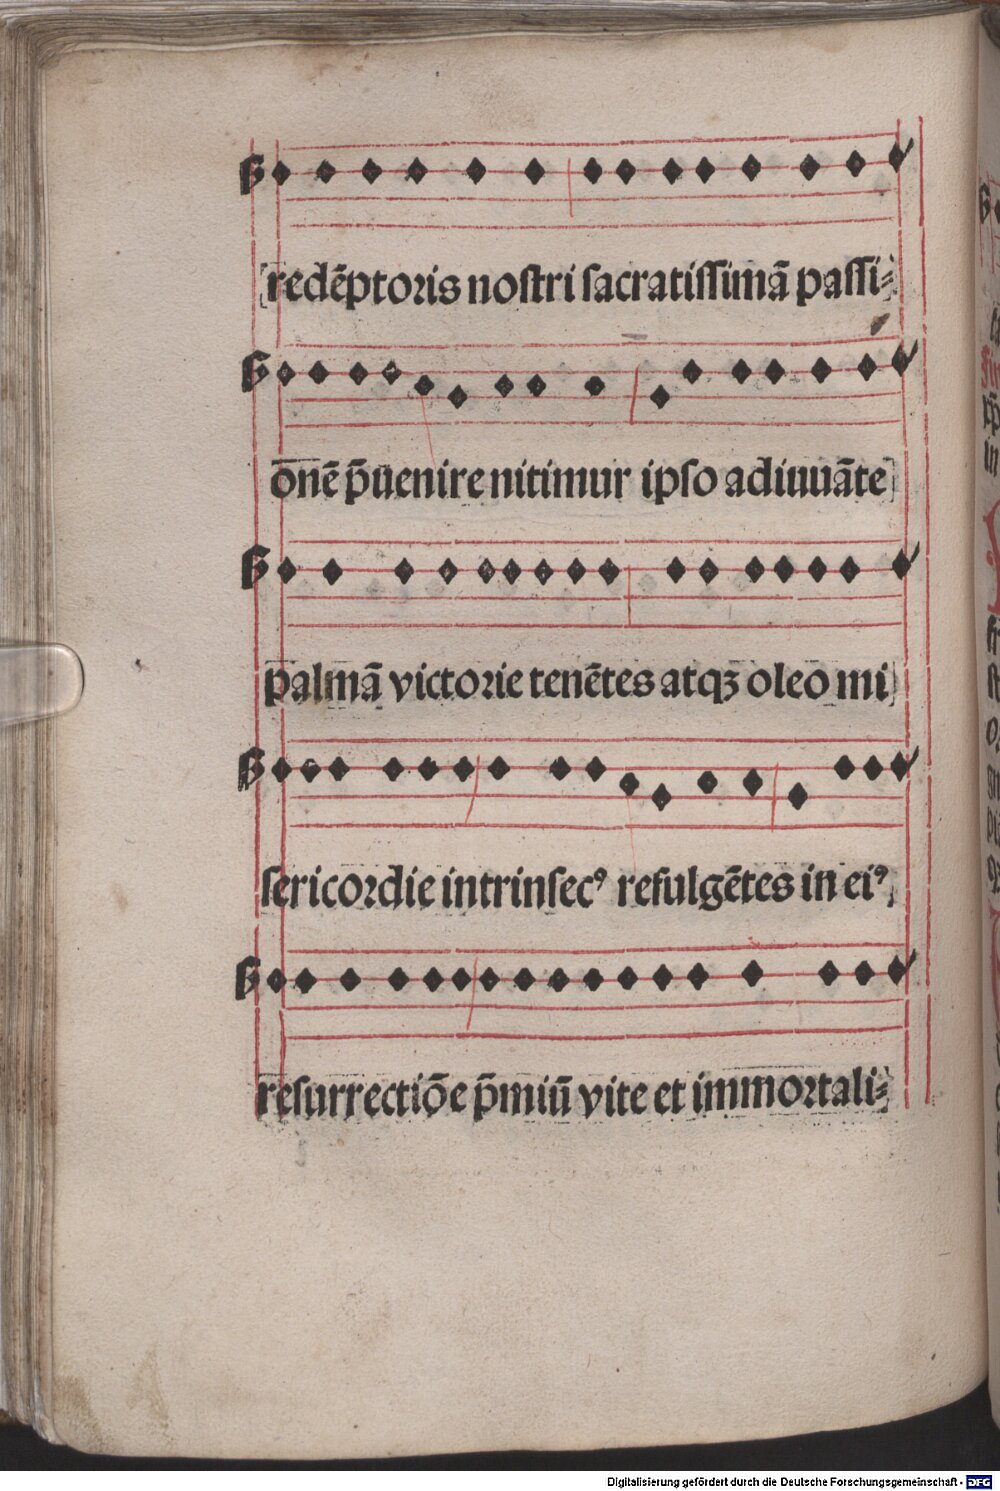 redēptoris nostri sacratissimā passi⸗
onē p̄uenire nitimur ipso adiuuāte
palmā victorie tenētes atqꝫ oleo mi
sericordie intrinsecꝰ refulgētes in eiꝰ
resurrectiōe p̄miū vite et immortali⸗
Digitalisierung gefördert durch die Deutsche Forschungsgemeinschaft - DFG